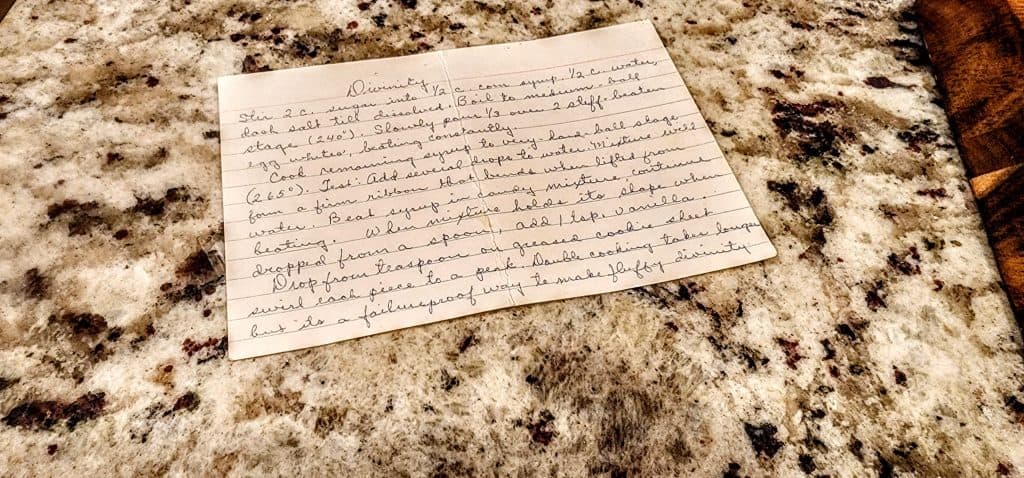 Divinity
Stir 2 c. sugar into ½ c. corn syrup, ½ c. water,
dash salt till dissolved. Boil to medium-ball
stage (240°). Slowly pour ⅓ over 2 stiff-beaten
egg whites, beating constantly.
Cook remaining syrup to very hard-ball stage
(265°). Test: Add several drops to water. Mixture will
form a firm ribbon that bends when lifted from
water. Beat syrup in candy mixture, continue
beating. When mixture holds its shape when
dropped from a spoon, add 1 tsp. vanilla.
Drop from teaspoon on greased cookie sheet
swirl each piece to a peak. Double cooking takes longer
but its a failureproof way to make fluffy divinity